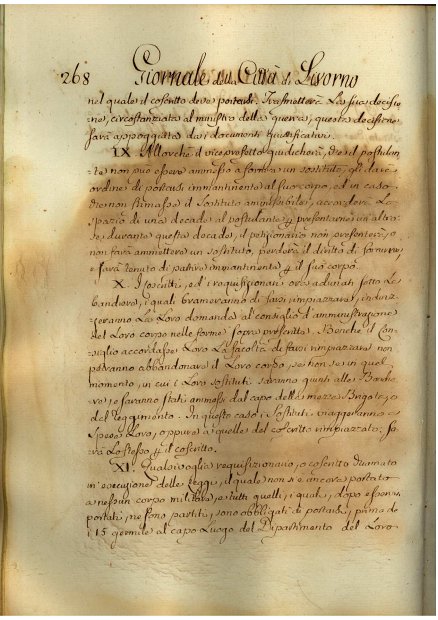 268 Giornale della Città di Livorno
nel quale il coscritto deve portarsi. Trasmetterà La sua decisio
ne, circostanziata al ministro della guerra, questa decisione
sarà appoggiata dai documenti giustificativi.
IX. Allorchè il vice prefetto giudicherà, che il postulan
te non può essere ammesso a fornire un sostituto, gli darà
ordine di portarsi immantinente al suo corpo, ed in caso
che non stimasse il Sostituto ammissibile, accorderà Lo
spazio di una decade al postulante per presentarne un altro
se durante questa decade, il petizionario non presenterà, o
non farà ammettere un sostituto, perderà il diritto di fornirne,
e sarà tenuto di patire immantinente per il suo corpo.
X. I coscritti, ed i requisizionari ora adunati sotto Le
bandiere, i quali brameranno di farsi rimpiazzare, indiriz
zeranno La Loro domanda al consiglio d'amministrazione
del Loro corpo nelle forme sopra prescritte. Benchè il Con
siglio accordasse Loro La facoltà di farsi rimpiazzare non
potranno abbandonare il Loro corpo, se non se in quel
momento, in cui i Loro sostituti saranno giunti alle Bandie
re, e saranno stati ammessi dal capo della mezza Brigata, o
del reggimento. In questo caso i Sostituti viaggeranno a
spese Loro, oppure a quelle del coscritto rimpiazzato; sa
rà Lo stesso per il coscritto.
XI. Qualsivoglia requisizionario, o coscritto chiamato
in esecuzione delle Leggi, il quale non si è ancora portato
a nessun corpo militare, e tutti quelli, i quali, dopo essersi
portati, ne sono partiti, sono obbligati di portarsi, prima de
i 15 germile al capo Luogo del Dipartimento del Loro